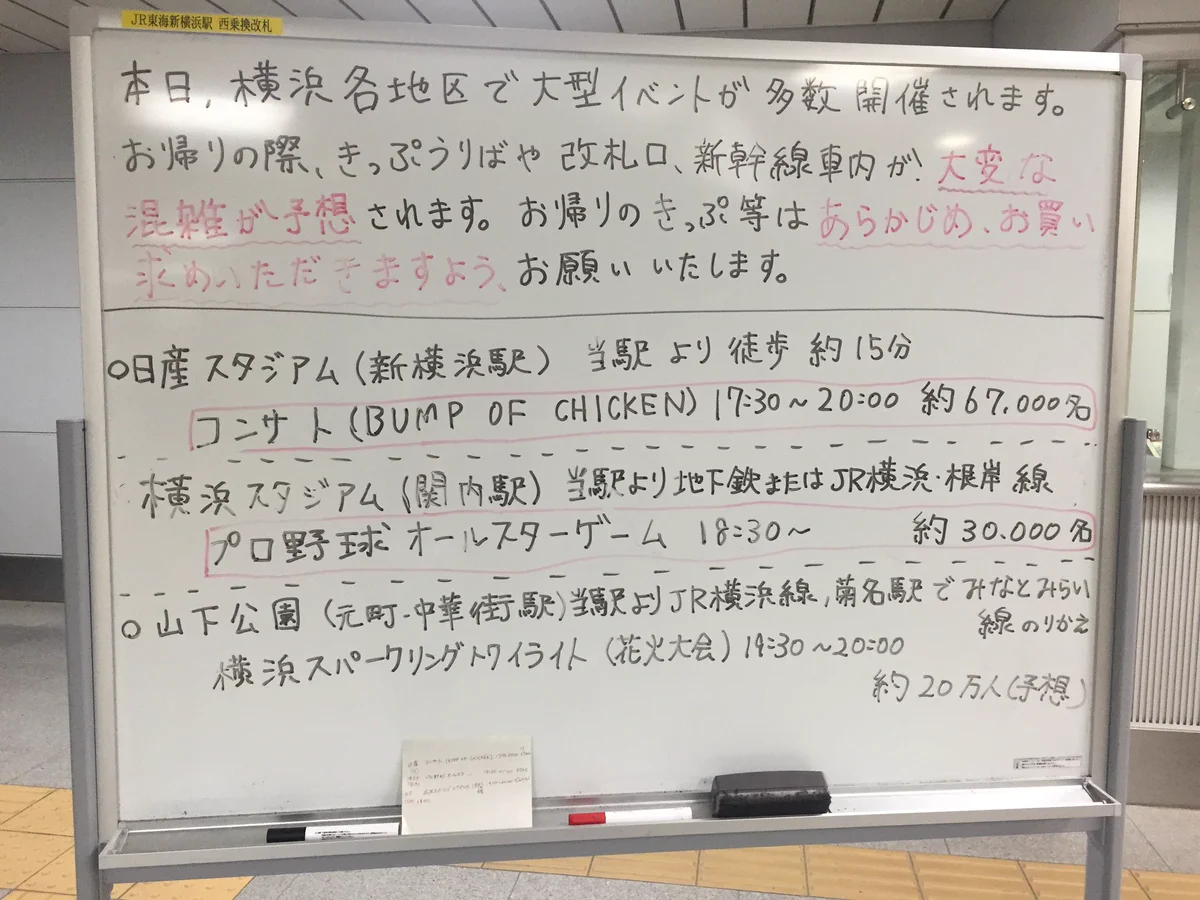 JR東海新横浜駅 西乗換改札
本日,横浜各地区で大型イベントが多数開催されます。
お帰りの際、きっぷうりばや改札口、新幹線車内が!大変な
混雑が予想されます。お帰りのきっぷ等はあらかじめ、お買い
求めいただきますよう、お願いいたします。
○日産スタジアム(新横浜駅) 当駅より徒歩約15分
コンサート(BUMP OF CHICKEN) 17:30~20:00 約67,000名
横浜スタジアム(関内駅) 当駅より地下鉄またはJR横浜・根岸線
プロ野球オールスターゲーム 18:30~ 約30.000名
○山下公園(元町-中華街駅)当駅よりJR横浜線,菊名駅でみなとみらい
線のりかえ
横浜スパークリングトワイライト(花火大会) 19:30~20:00
約20万人(予想)